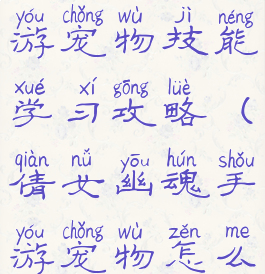 yóu chǒng wù jì néng
游宠物技能
xué xí gōng lüè
学习攻略（
qiàn nǚ yōu hún shǒu
倩女幽魂手
yóu chǒng wù zěn me
游宠物怎么